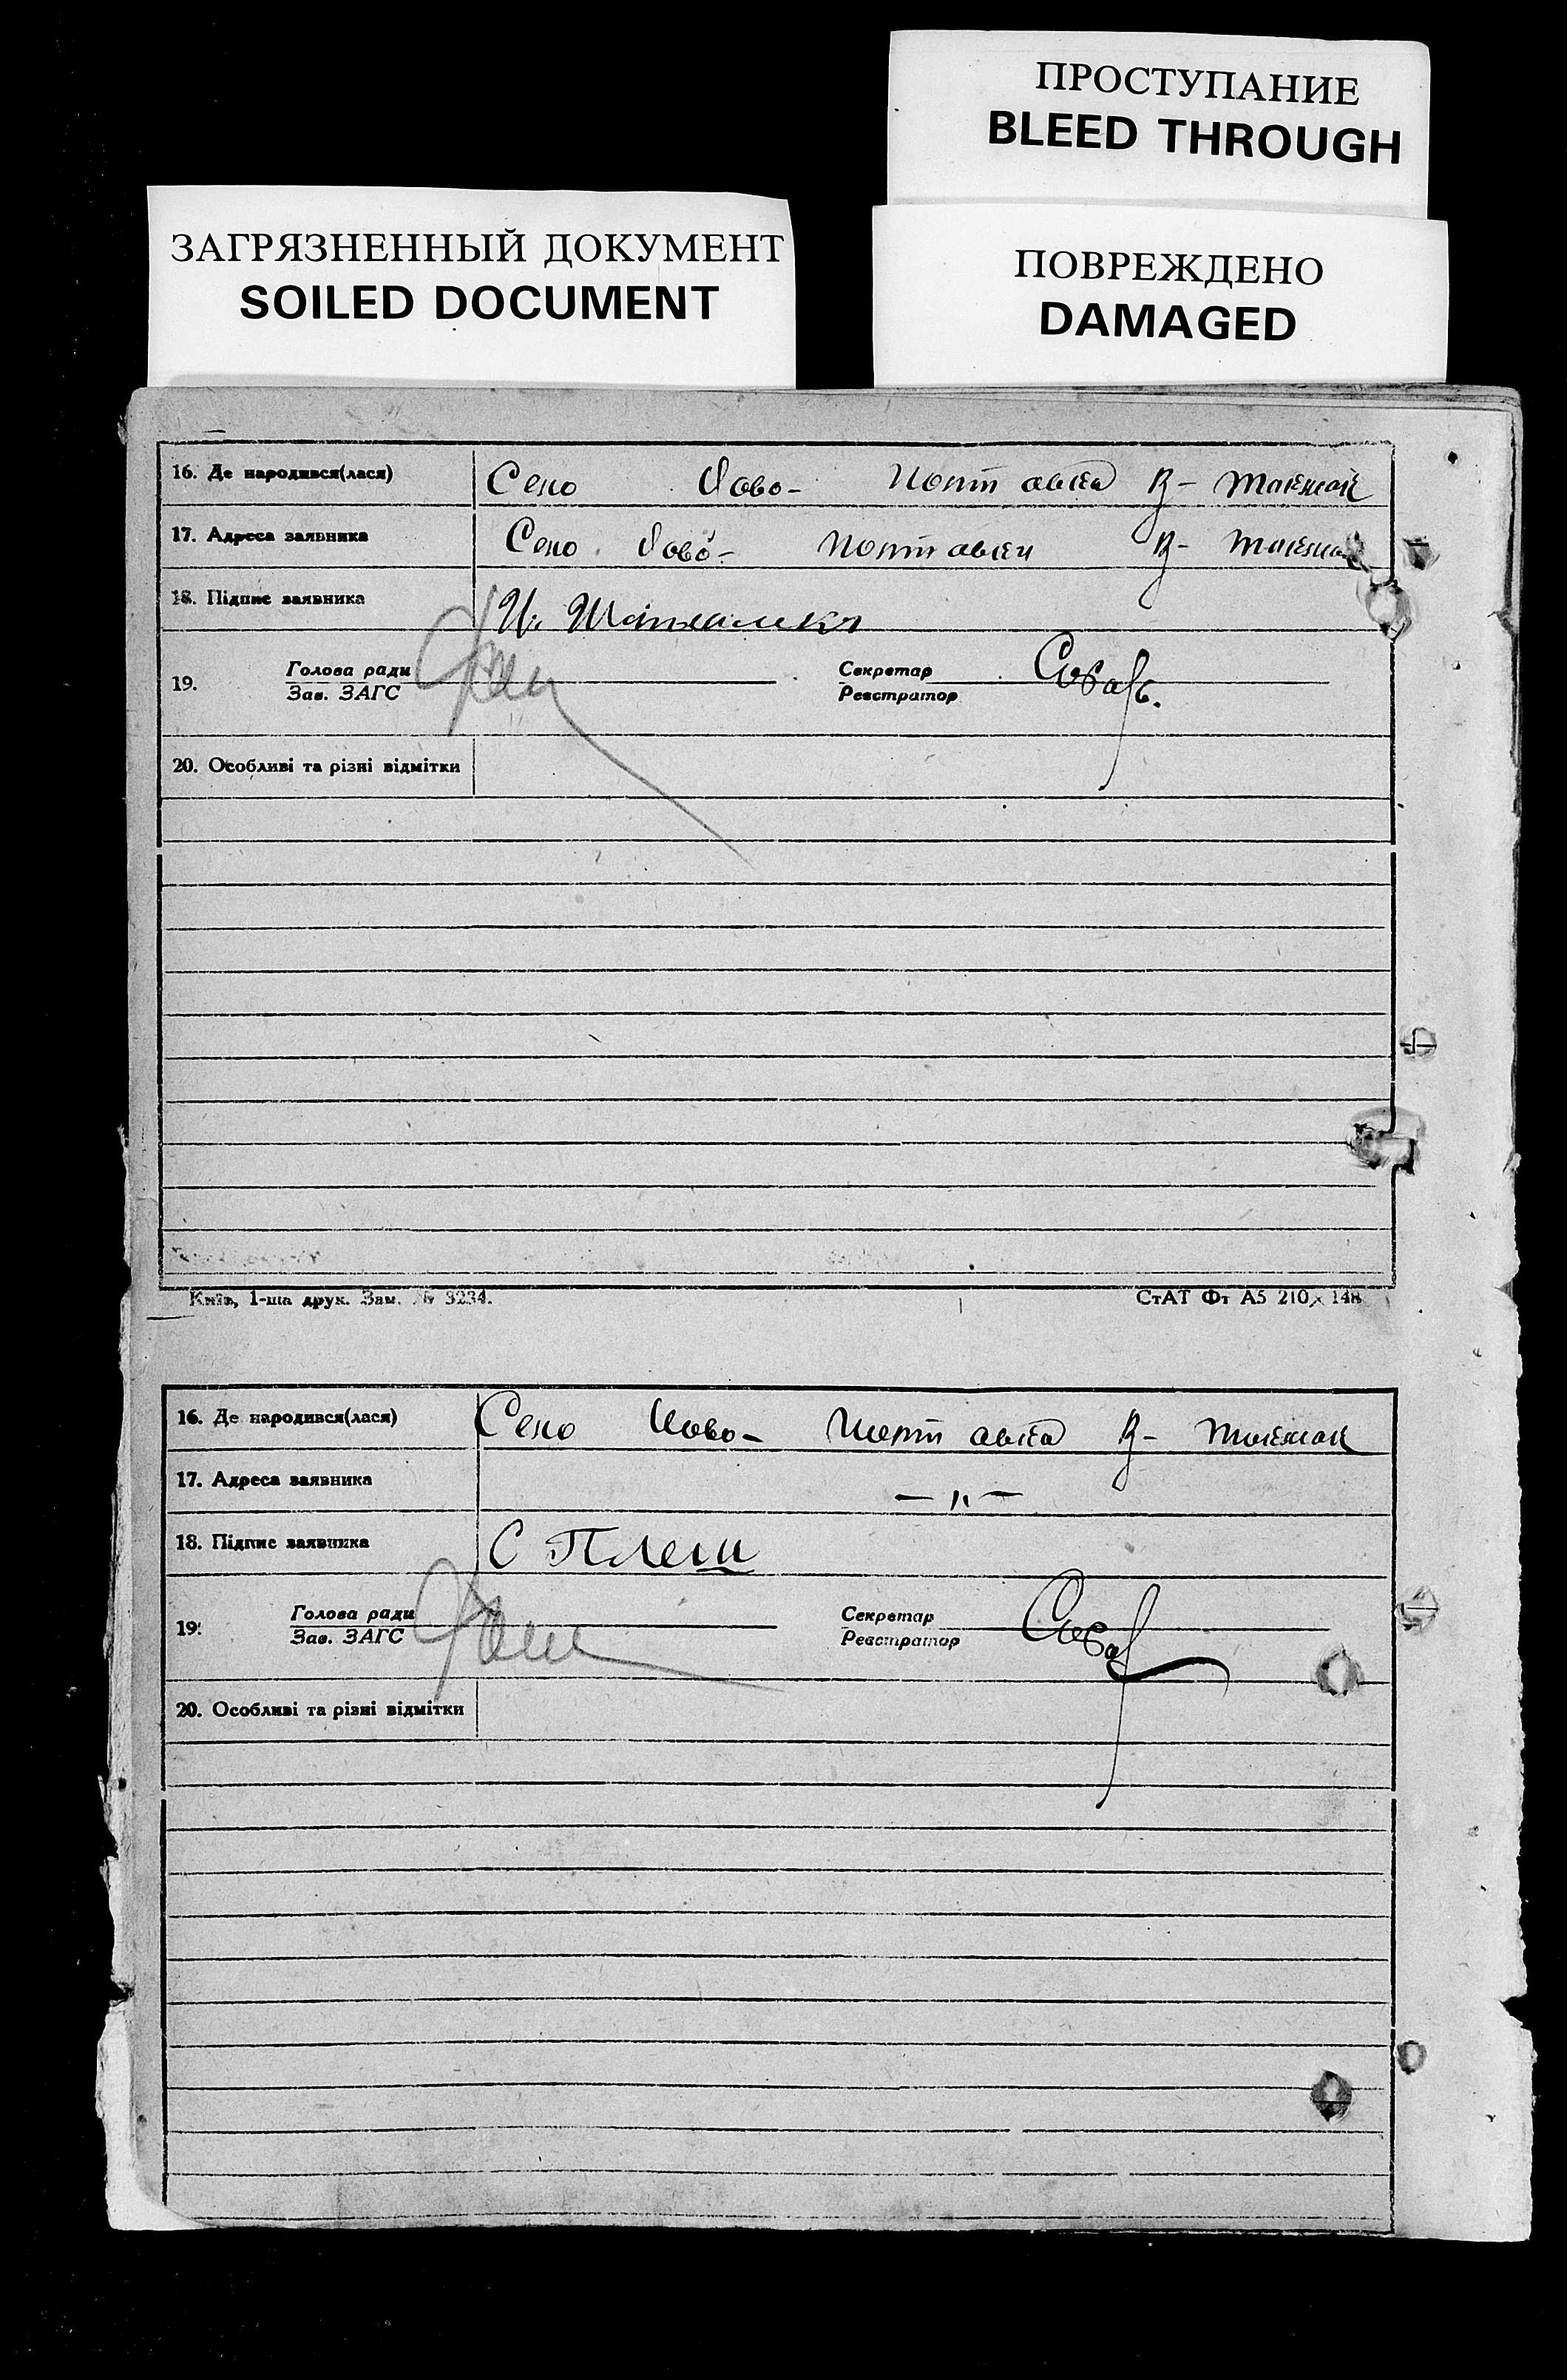 ПРОСТУПАНИЕ
BLEED THROUGH
ЗАГРЯЗНЕННЫЙ ДОКУМЕНТ
SOILED DOCUMENT
ПОВРЕЖДЕНО
DAMAGED
16. Де народився(лася) Село Ново- Полтавка В- Токмак
17. Адреса заявника Село Ново- Полтавки В- Токмак
18. Підпис заявника
19. Голова ради Секретар
Зав. ЗАГС Реєстратор
20. Особливі та різні відмітки
Київ, 1-ша друк. Зам. № 3234. СтАТ Фт А5 210 х 148
16. Де народився(лася) Село Ново- Полтавка В- Токмак
17. Адреса заявника — " —
18. Підпис заявника С Плеш
19. Голова ради Секретар
Зав. ЗАГС Реєстратор
20. Особливі та різні відмітки